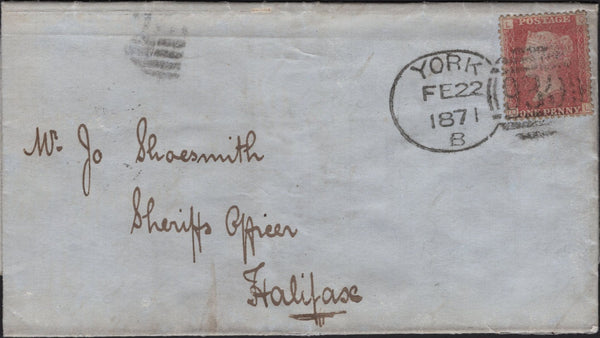 POSTAGE
ONE PENNY
YORK
FE 22
1871
B
Mr. Jo Shoesmith
Sheriffs Officer
Halifax